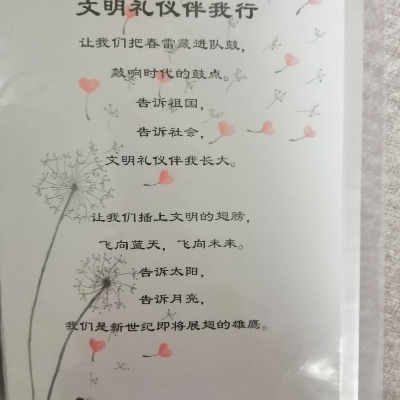 文明礼仪伴我行
让我们把春雷藏进队鼓,
敲响时代的鼓点。
告诉祖国,
告诉社会,
文明礼仪伴我长大。
让我们插上文明的翅膀,
飞向蓝天，飞向未来。
告诉太阳,
告诉月亮,
我们是新世纪即将展翅的雄鹰。